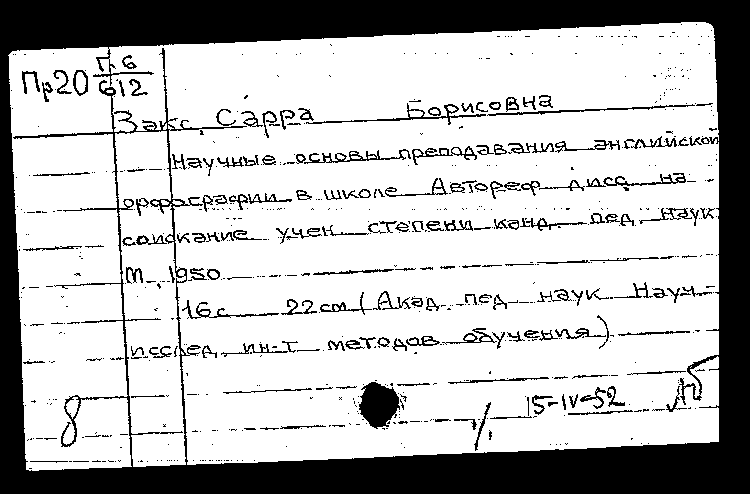 Пр20 Г.6/612
Закс, Сарра Борисовна
Научные основы преподавания английской
орфографии в школе Автореф дисс. на
соискание учен степени канд. пед. наук.
М., 1950
16 с 22 cm (Акад. пед наук Науч.-
исслед. ин-т методов обучения)
8 15-IV-52